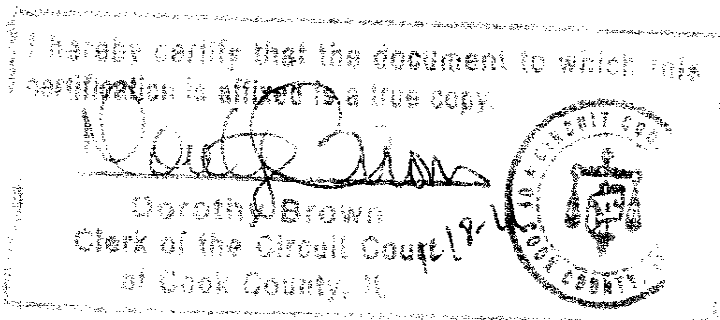 I hereby certify that the document to which this
certification is affixed is a true copy.
Dorothy Brown
Clerk of the Circuit Court
of Cook County, IL
CIRCUIT COURT OF COOK COUNTY